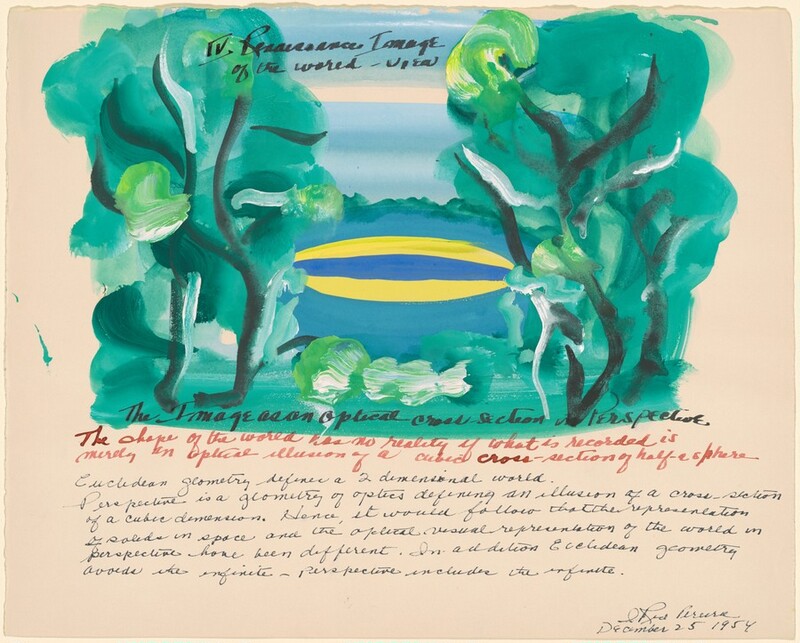 IV. Renaissance Image
of the world - view
The Image as an optical cross-section in Perspective
The shape of the world has no reality if what is recorded is
merely an optical illusion of a cubic cross-section of half-a sphere
Euclidean geometry defines a 2 dimensional world.
Perspective is a geometry of optics defining an illusion of a cross-section
of a cubic dimension. Hence, it would follow that the representation
of solids in space and the optical visual representation of the world in
perspective have been different. In addition Euclidean geometry
avoids the infinite - Perspective includes the infinite.
I. Rice Pereira
December 25 1954